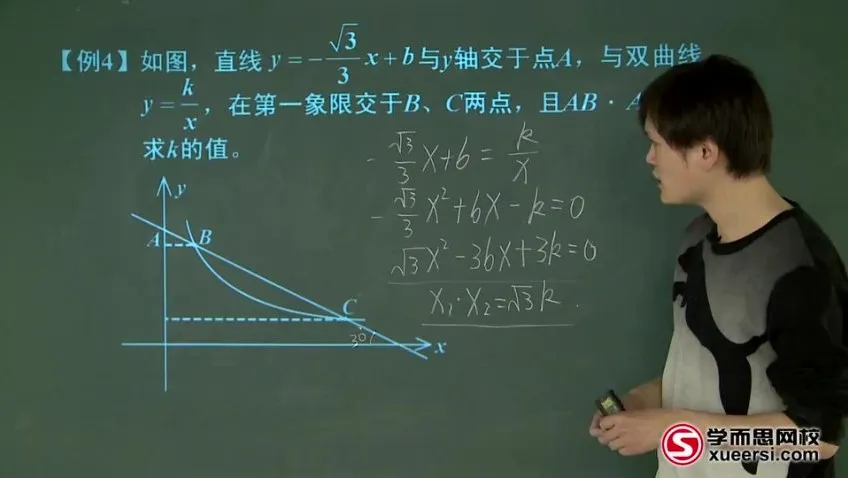 【例4】如图，直线 y=-\frac{\sqrt{3}}{3}x+b与y轴交于点A，与双曲线
y=\frac{k}{x}，在第一象限交于B、C两点，且AB·
求k的值。
-\frac{\sqrt{3}}{3}x+b=\frac{k}{x}
-\frac{\sqrt{3}}{3}x²+bx-k=0
\sqrt{3}x²-3bx+3k=0
x₁·x₂=\sqrt{3}k.
y
A
B
C
30°
x
学而思网校
xueersi.com